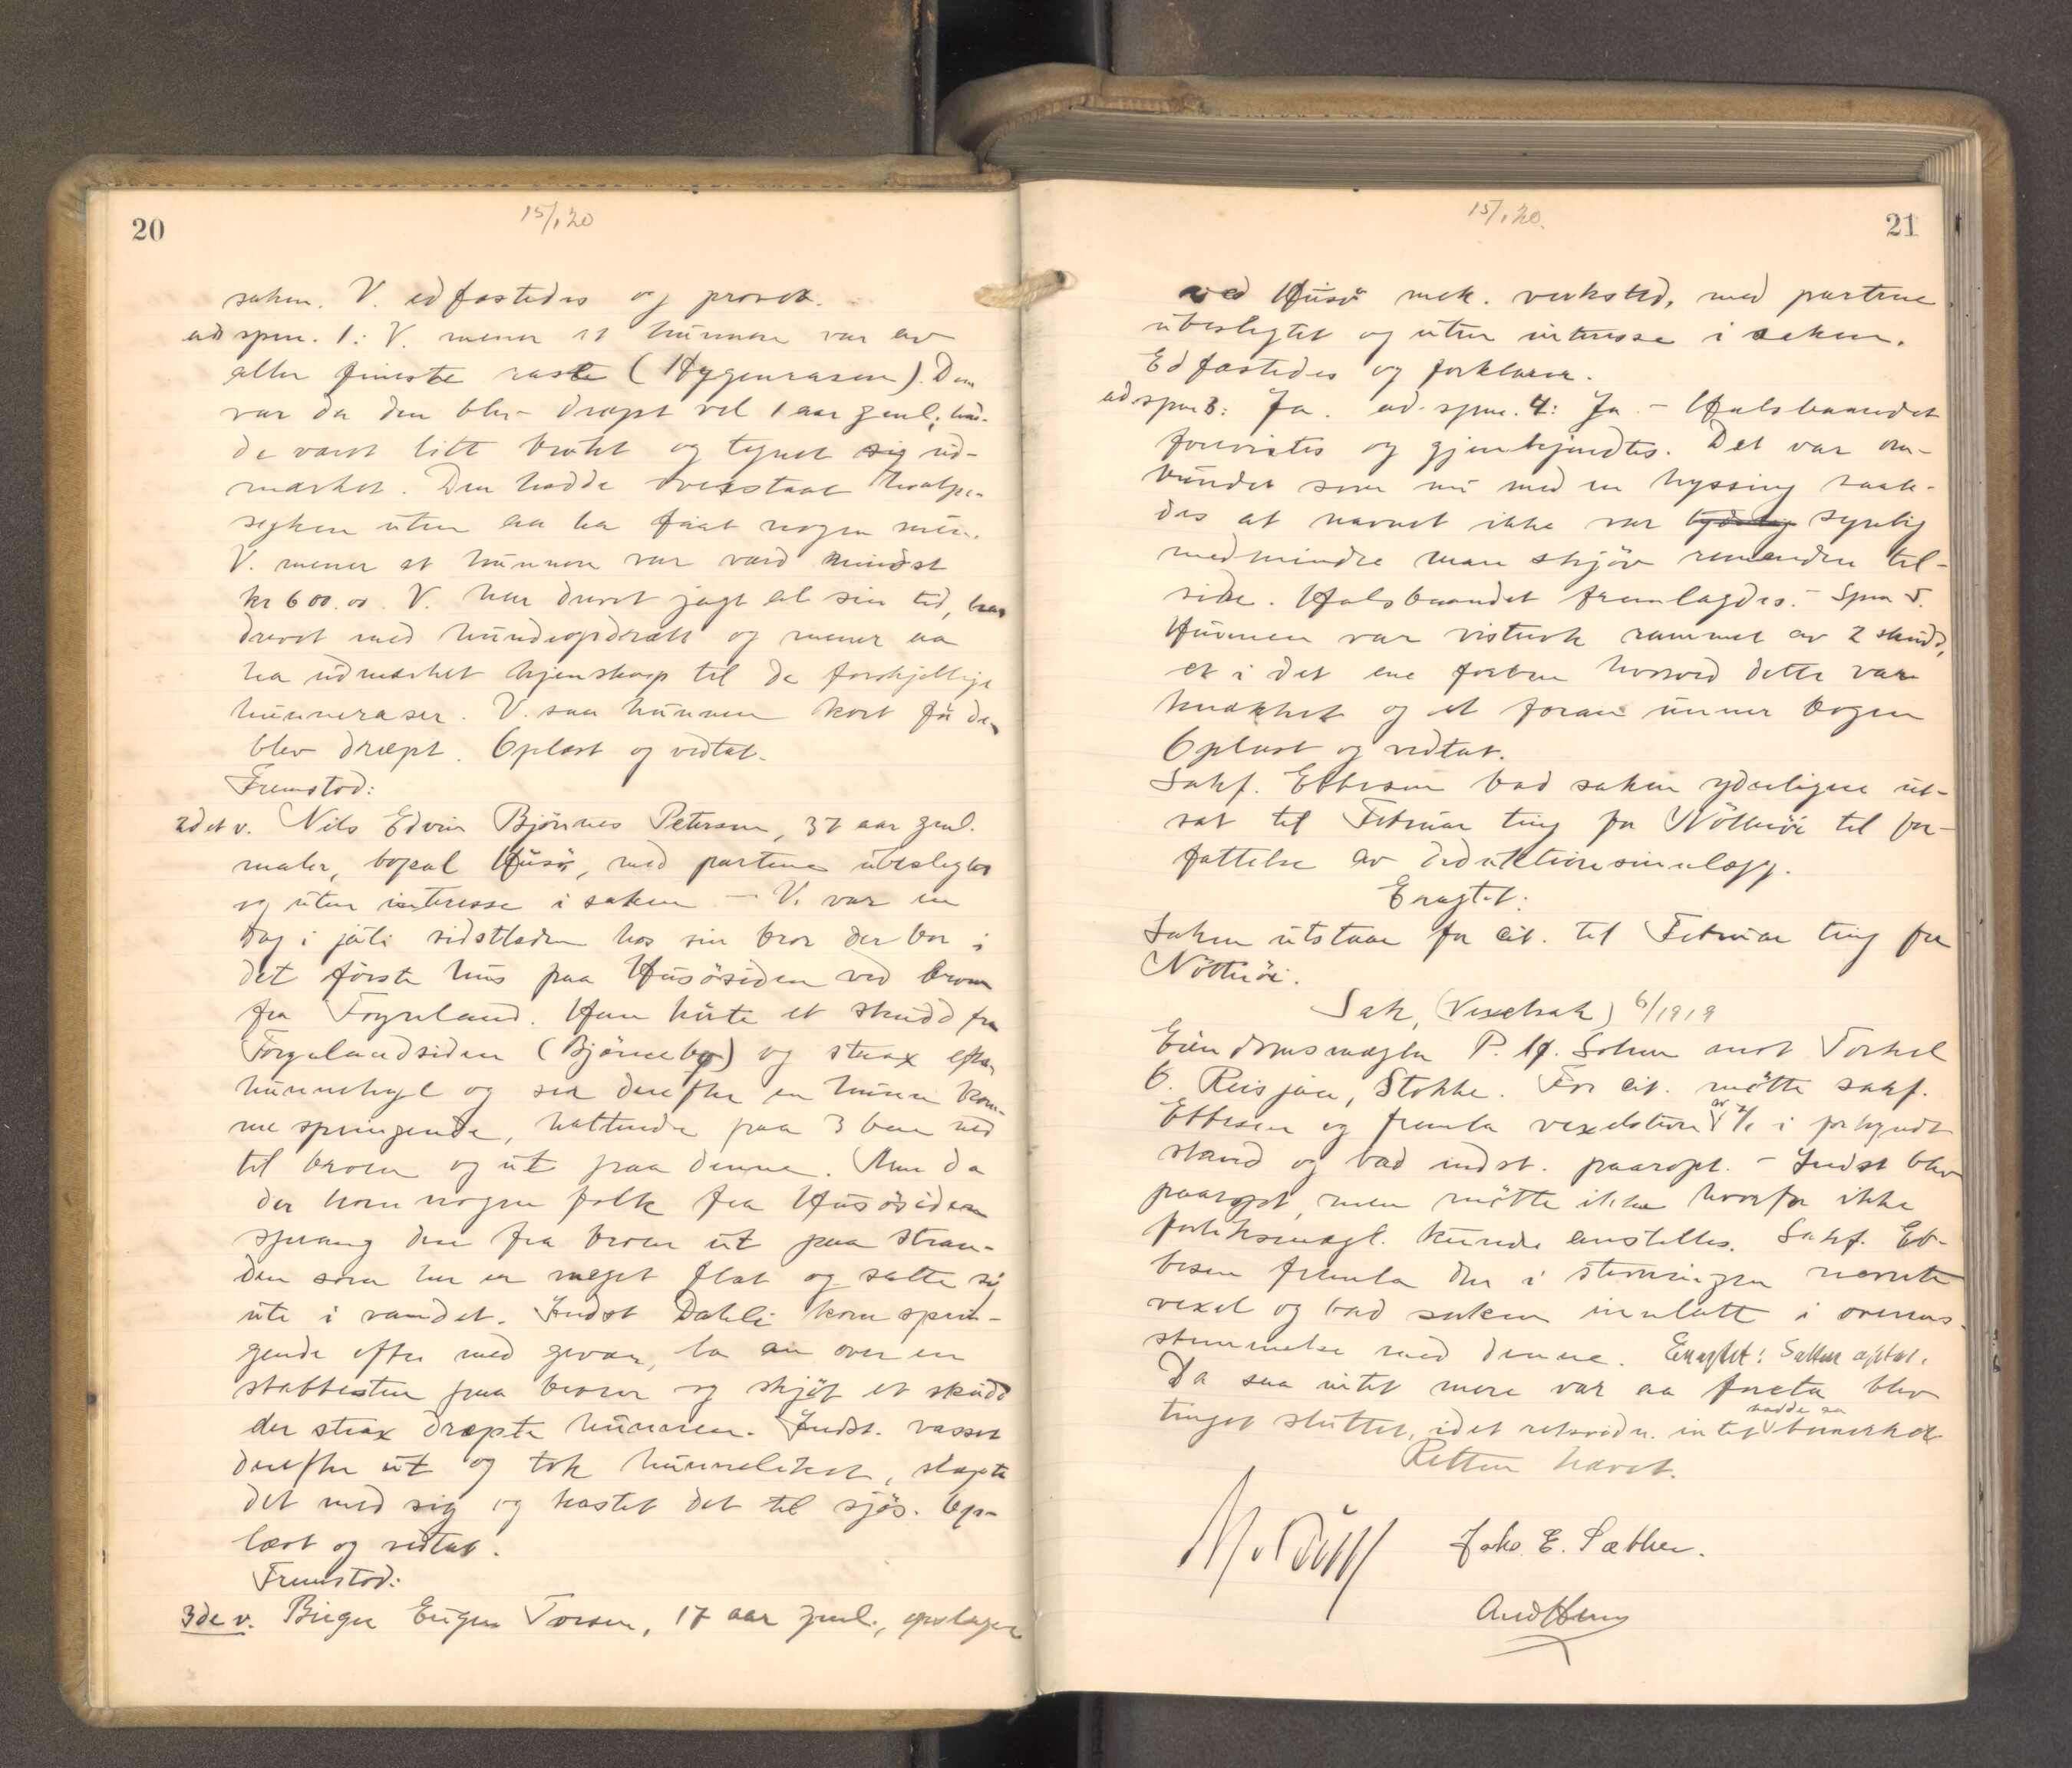 20
15/1 20
saken. V. edfæstedes og provet.
ad spm. 1: V. mener at hunnen var av
aller fineste rase (Hygenrasen). Den
var da den blev dræpt vel 1 aar gml., had-
de været litt brukt og tegnet sig ud-
merket. Den hadde overstaat hvalpe-
syken uten aa ha faat nogen mén.
V. mener at hunnen var værd mindst
kr 600.00. V. har drevet jagt al sin tid, har
drevet med hundeopdræt og mener aa
ha udmerket kjenskap til de forskjellige
hunneraser. V. saa hunnen kort før den
blev dræpt. Oplæst og vedtat.
Fremstod:
2det v. Nils Edvin Bjönnes Petersen, 37 aar gml.
maler, bopæl Husö, med partene ubeslegtet
og uten interesse i saken – V. var en
dag i juli sidstleden hos sin bror der bor i
det første hus paa Husösiden ved broen
fra Föynland. Han hörte et skudd fra
Föynlandsiden (Bjönnebo) og strax efter
hunnehyl og ser derefter en hunn kom-
me springende, haltende paa 3 ben ned
til broen og ut paa denne. Men da
der kom nogen folk fra Husösiden
sprang den fra broen ut paa stran-
den som her er meget flat og satte sig
ute i vandet. Indst Dahli kom sprin-
gende efter med gevær, la an over en
stabbesten paa broen og skjöt et skudd
der strax dræpte hunnen. Indst. vasset
derefter ut og tok hunneliket, slæpte
det med sig og kastet det til sjös. Op-
læst og vedtat.
Fremstod:
3de v. Birger Eugen Torsen, 17 aar gml., opslager
15/1 20.
21
ved Husö mek. verksted, med partene
ubeslegtet og uten interesse i saken.
Edfæstedes og forklarer.
ad spm 3: Ja. ad. spm. 4: Ja. – Halsbaandet
forevistes og gjenkjendtes. Det var om-
bundet som nu med en hyssing saale-
des at navnet ikke var tydelig synlig
medmindre man skjöv remenden til-
side. Halsbaandet fremlagdes. – Spm 5.
Hunnen var vistnok rammet av 2 skudd,
et i det ene forben hvorved dette var
knækket og et foran under bogen
Oplæst og vedtat.
Sakf. Ebbesen bad saken yderligere ut-
sat til Februar ting for Nötteröi til for-
fattelse av deduktionsinnlægg.
Eragtet:
Saken utstaar for cit. til Februar ting for
Nötteröi.
Sak, (Vexelsak) 6/1919
Eiendomsmægler P. H. Solum mot Torkel
O. Reisjaa, Stokke. For cit. mötte sakf.
Ebbesen og fremla vexelstevn. av 7/1 i forkyndt
stand og bad indst. paaropt. – Indst blev
paaropt, men mötte ikke hvorfor ikke
forliksmægl. kunde anstilles. Sakf. Eb-
besen fremla den i stevningen nævnte
vexel og bad saken innlatt i overens-
stemmelse med denne. Eragtet: Saken optat.
Da saa intet mere var aa foreta blev
tinget sluttet, idet retsvidn. intet hadde aa bemerket
Retten hævet.
Johs. E. Sæther.